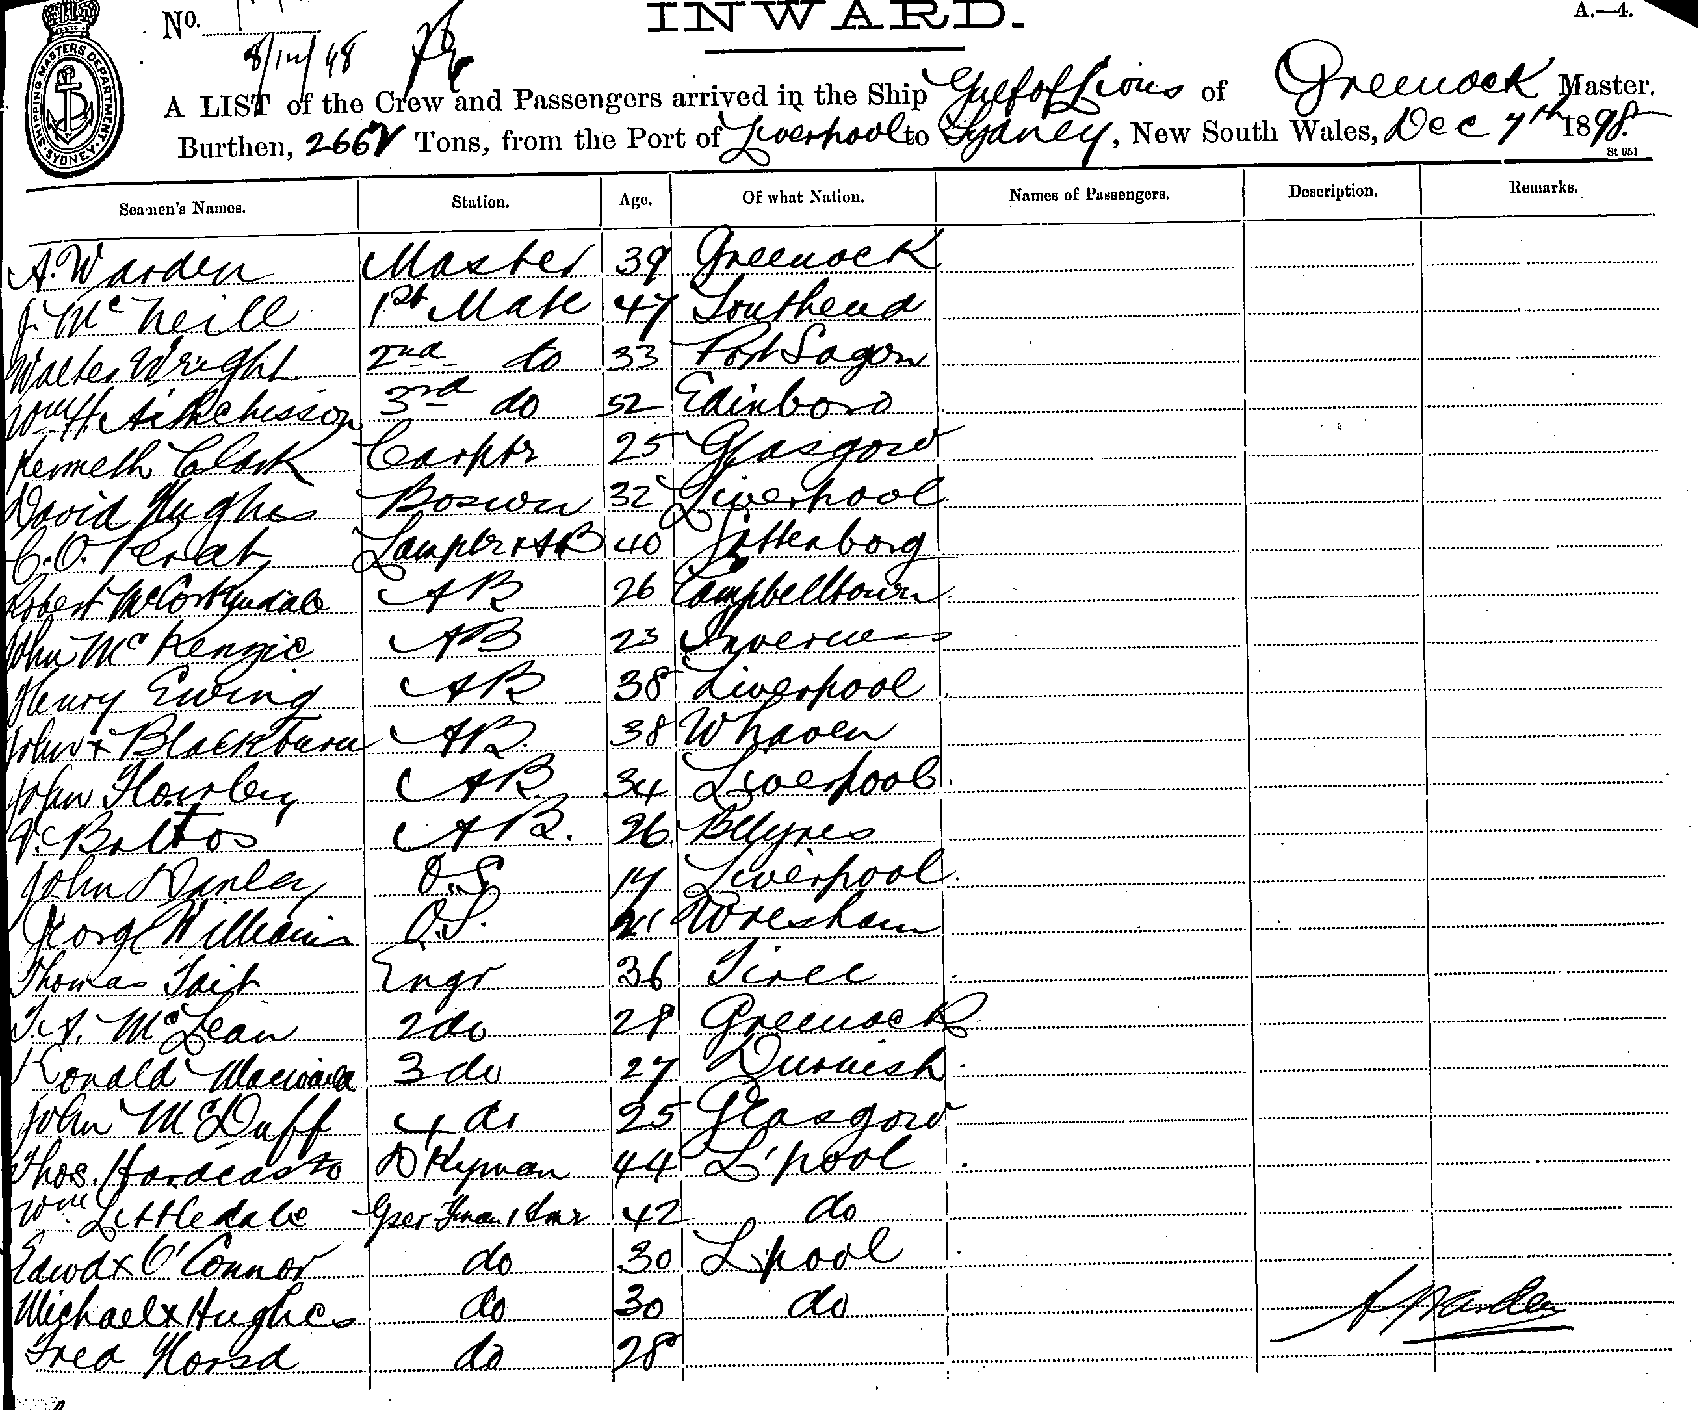 No.
INWARD.
A.—4.
8/12/98
SHIPPING MASTERS DEPARTMENT SYDNEY
A LIST of the Crew and Passengers arrived in the Ship Gulf of Lions of Greenock Master.
Burthen, Tons, from the Port of Liverpool to Sydney, New South Wales, Dec 7th 1898.
Seamen's Names. Station. Age. Of what Nation. Names of Passengers. Description. Remarks.
A. Warden Master 39 Greenock
J. McNeill 1st Mate 47 Southend
Walter Wright 2nd do 33 Port
Wm H Aitcheson 3rd do 52 Edinboro
Kenneth Clark Carptr 25 Glasgow
David Hughes Bosun 32 Liverpool
C. O. Lamptr & AB 40
Robert McCorkindale AB 26 Campbelltown
John McKenzie AB 23 Inverness
Henry Ewing AB 38 Liverpool
John x Blackburn AB. 38 Whaven
John AB 34 Liverpool
AB. 26 BAyres
John O.S. 17 Liverpool
George Williams O.S. Wrexham
Thomas Tait Engr 36 Tiree
McLean 2 do 28 Greenock
Ronald 3 do 27 Durnish
John McDuff 4 do 25 Glasgow
Thos. Hardcastle DKyman 44 L'pool
Wm Littledale 42 do
Edwd x O'Connor do 30 L'pool
Michael x Hughes do 30 do
A. Warden
Fred do 28